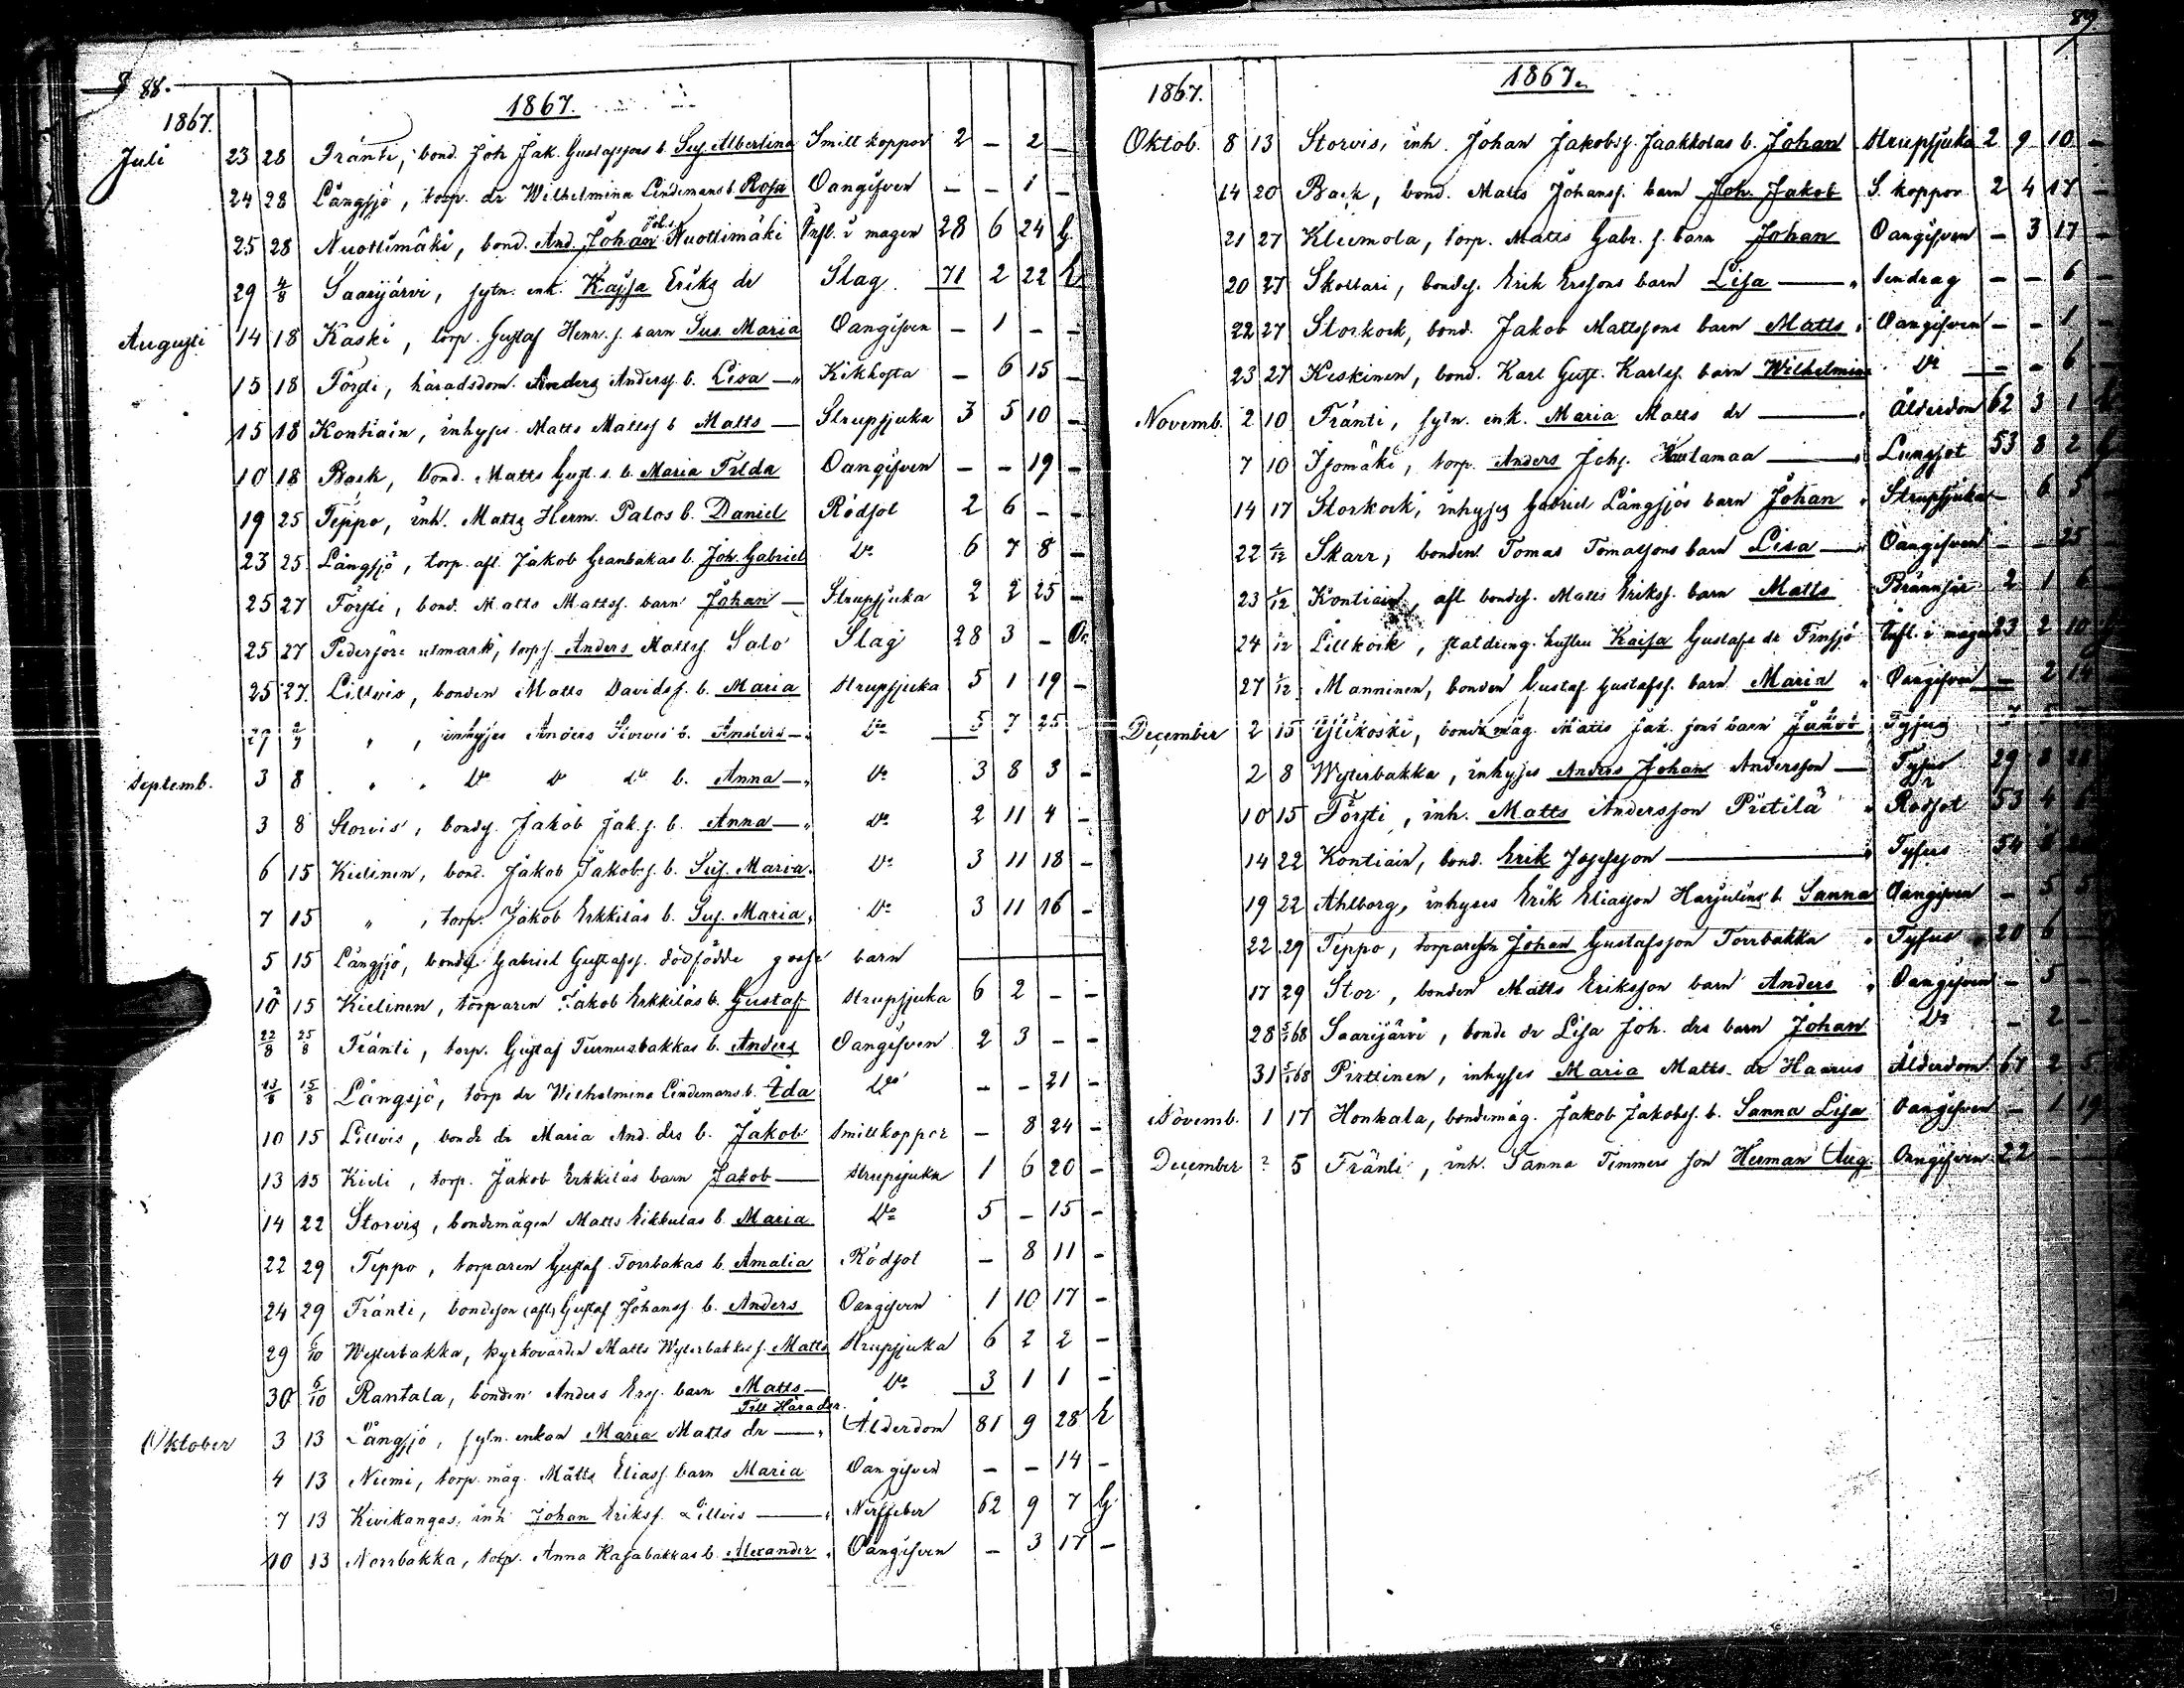 88.
1867.
1867.
Juli 23 28 Fränti, bond. Joh Jak. Gustafssons b. Sus. Albertina Smittkoppor 2 — 2 —
24 28 Långsjö, torp. dr Wilhelmina Lindemans b. Rosa Oangifven — — 1 —
25 28 Nuottimäki, bond. And. Johan Joh.s. Nuottimäki Infl. i magen 28 6 24 G.
29 4/8 Saarijärvi, sytn. enk. Kajsa Eriks dr Slag 71 2 22 E
Augusti 14 18 Kaski, torp. Gustaf Henr. s. barn Sus. Maria Oangifven — 1 — —
15 18 Försti, häradsdom. Anders Anderss. b. Lisa — " Kikhosta — 6 15 —
15 18 Kontiain, inhyses Matts Mattss b Matts — Strupsjuka 3 5 10 —
10 18 Back, bond. Matts Gust. s. b. Maria Tilda Oangifven — — 19 —
19 25 Teppo, inh. Matts Herm. Palos b. Daniel Rödsot 2 6 — —
23 25 Långsjö, torp. afl. Jakob Granbakas b. Joh. Gabriel Do 6 7 8 —
25 27 Försti, bond. Matts Mattss. barn Johan — Strupsjuka 2 2 25 —
25 27 Pedersöre utmark, torp.s. Anders Mattss. Salo Slag 28 3 — Og.
25 27. Lillvis, bonden Matts Davidss. b. Maria Strupsjuka 5 1 19 —
29 2/9 " , inhyses Anders Storvis b. Anders — Do 5 7 25 —
Septemb. 3 8 " " Do Do do b. Anna — " Do 3 8 3 —
3 8 Storvis, bondes. Jakob Jak. s. b. Anna — " Do 2 11 4 —
6 15 Kielinen, bond. Jakob Jakobs s. b. Sus. Maria. Do 3 11 18 —
7 15 " , torp. Jakob Erkkiläs b. Sus. Maria " Do 3 11 16 —
5 15 Långsjö, bondes Gabriel Gustafss. dödfödde gosse barn
10 15 Kielinen, torparen Jakob Erkkiläs b. Gustaf Strupsjuka 6 2 — —
22/8 25/8 Fränti, torp. Gustaf Turnusbakkas b. Anders Oangifven 2 3 — —
13/8 15/8 Långsjö, torp dr Wilhelmina Lindemans b. Ida Do — — 21 —
10 15 Lillvis, bonde dr Maria And. drs b. Jakob Smittkoppor — 8 24 —
13 15 Kieli, torp. Jakob Erkkiläs barn Jakob — Strupsjuka 1 6 20 —
14 22 Storvis, bondemågen Matts Eikkulas b. Maria Do 5 — 15 —
22 29 Teppo, torparen Gustaf Torrbakas b. Amalia Rödsot — 8 11 —
24 29 Fränti, bondeson (afl) Gustaf Johanss. b. Anders Oangifven 1 10 17 —
29 6/10 Westerbakka, kyrkovärden Matts Westerbakkas s. Matts Strupsjuka 6 2 2 —
30 6/10 Rantala, bonden Anders Ers s. barn Matts — Do 3 1 1 —
Till Härader.
Oktober 3 13 Långsjö, sytn. enkan Maria Matts dr — " Ålderdom 81 9 28 E
4 13 Niemi, torp. måg. Matts Eliass. barn Maria Oangifven — — 14 —
7 13 Kivikangas, inh Johan Erikss. Lillvis — " Nerffeber 62 9 7 G.
10 13 Norrbakka, torp. Anna Kasabakkas b. Alexander " Oangifven — 3 17 —
89.
1867.
1867.
Oktob. 8 13 Storvis, inh. Johan Jakobss. Jaakkolas b. Johan Strupsjuka 2 9 10 —
14 20 Back, bond. Matts Johanss. barn Joh. Jakob S. koppor 2 4 17 —
21 27 Kleemola, torp. Matts Gabr. s. barn Johan Oangifven — 3 17 —
20 27 Skottari, bondes. Erik Erssons barn Lisa — " Sendrag — — 6 —
22 27 Storkock, bond. Jakob Mattssons barn Matts " Oangifven — — 1 —
23 27 Keskinen, bond. Karl Gust. Karlss. barn Wilhelmina Do — — 6 —
Novemb. 2 10 Fränti, sytn. enk. Maria Matts dr — " Ålderdom 62 3 1
7 10 Isomäki, torp. Anders Johs. Kustamaa — " Lungsot 53 8 2 G
14 17 Storkock, inhyses Gabriel Långsjös barn Johan " Strupsjuka — 6 5
22 1/12 Skarr, bonden Tomas Tomassons barn Lisa — " Oangifven — — 25
23 1/12 Kontiain, afl bondes. Matts Erikss. barn Matts Brännsår 2 1 6 —
24 1/12 Lillkock, statdreng. hustru Kaisa Gustafs dr Finsjö Infl. i magen 23 2 10
27 1/12 Manninen, bonden Gustaf Gustafss. barn Maria " Oangifven — 2 14
December 2 15 Ylikoski, bondemåg. Matts Jak. sons barn Jakob Tyfus
2 8 Westerbakka, inhyses Anders Johan Andersson — Tyfus 29 8
10 15 Försti, inh. Matts Andersson Pietilä " Rödsot 53 4 6
14 22 Kontiain, bond. Erik Josefsson — " Tyfus 54
19 22 Ahlborg, inhyses Erik Eliasson Harjulins b. Sanna Oangifven — 5 5
22 29 Teppo, torpareson Johan Gustafsson Torrbakka " Tyfus 20 6
17 29 Stor, bonden Matts Eriksson barn Anders " Oangifven — 5 —
28 5/1 68 Saarijärvi, bonde dr Lisa Joh. drs barn Johan Do — 2 —
31 5/1 68 Pirttinen, inhyses Maria Matts dr Haarus Ålderdom 67 2 5
Novemb. 1 17 Honkala, bondemåg. Jakob Jakobss. b. Sanna Lisa Oangifven — 1 19
December ? 5 Fränti, inh. Sanna Timmers son Herman Aug. Oangifven 22 — —